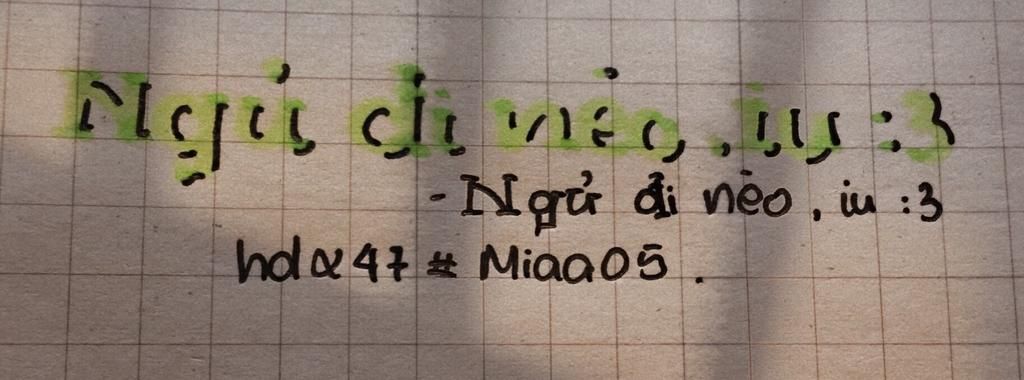 Ngủ đi nèo, iu :3
- Ngủ đi nèo, iu :3
hdα47 # Miaa05.